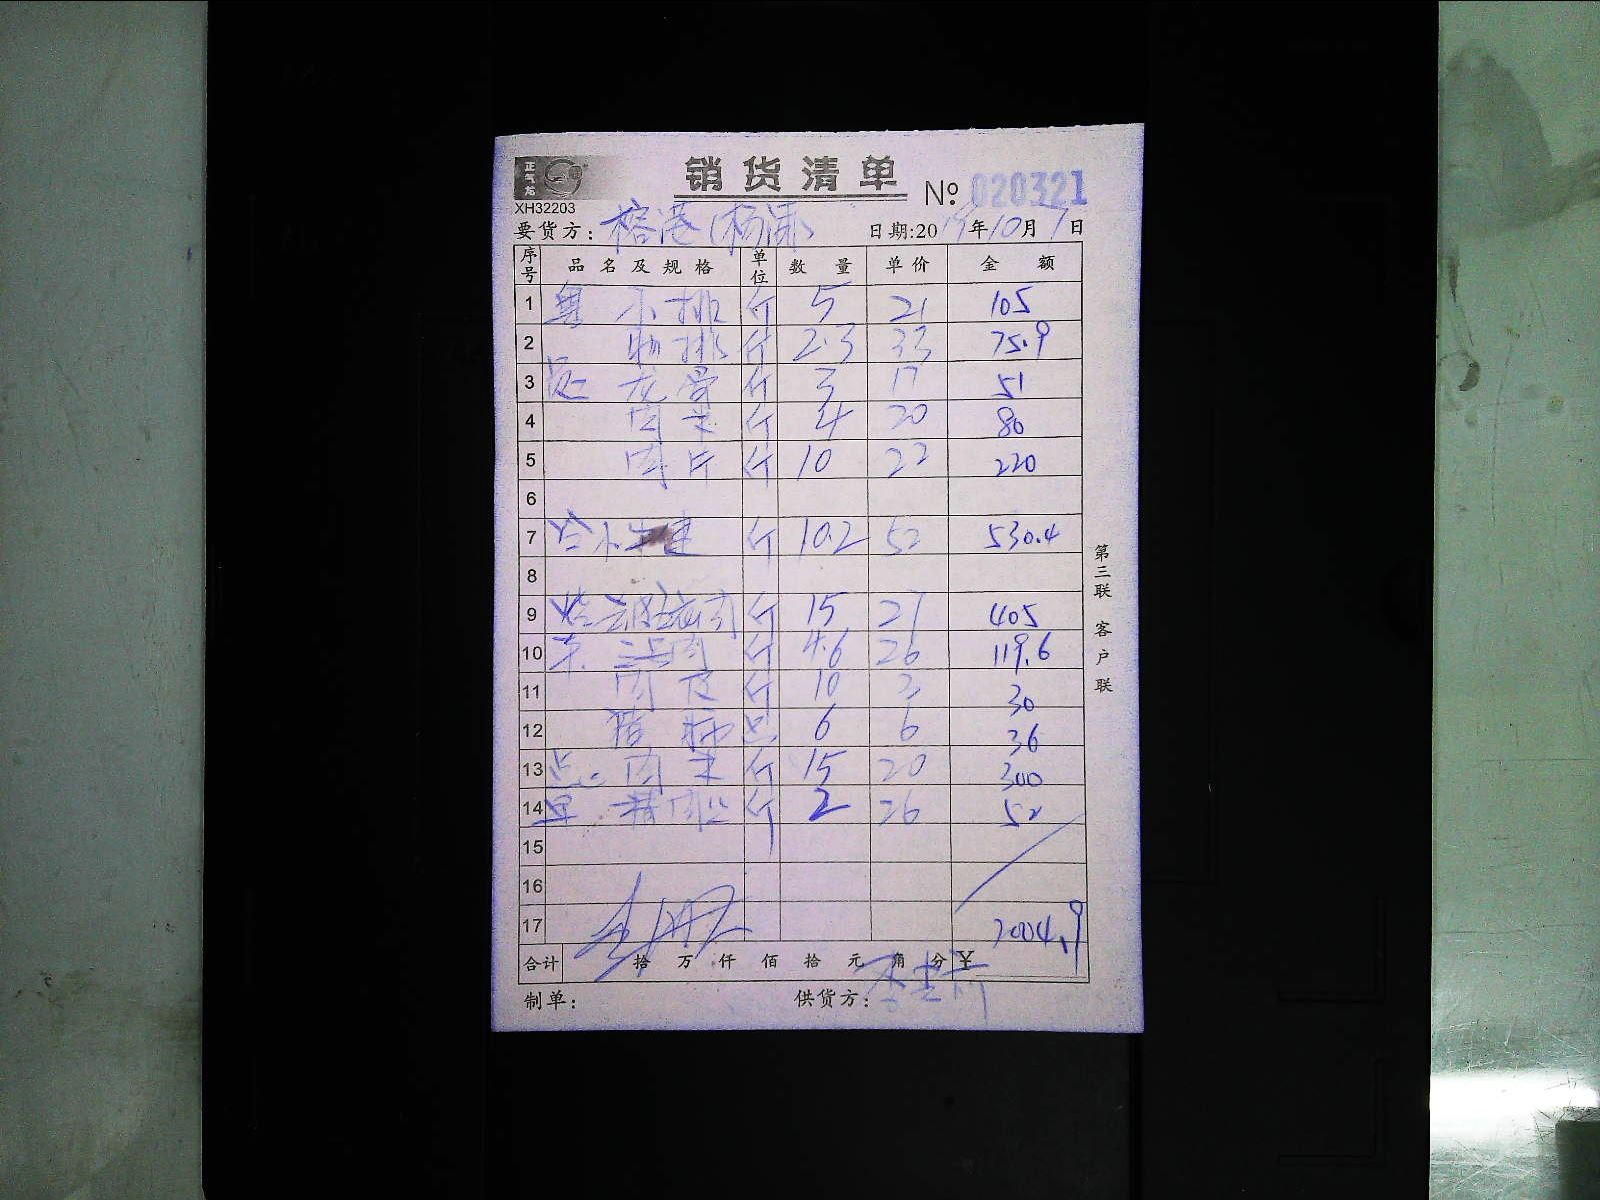 正气龙
销货清单
XH32203
№ 020321
要货方: 榕港(杨
日期:2019年10月1日
序号 品名及规格 单位 数量 单价 金额
1 小排 斤 5 21 105
2 肋排 斤 2.3 33 75.9
3 龙骨 斤 3 17 51
4 肉末 斤 4 20 80
5 肉片 斤 10 22 220
6
7 小牛 斤 10.2 52 530.4
8
9 斤 15 27 405
10 三层肉 斤 4.6 26 119.6
11 肉皮 斤 10 3 30
12 猪 6 6 36
13 点心 肉末 斤 15 20 300
14 精肉 斤 2 26 52
15
16
17 2004.9
合计 拾 万 仟 佰 拾 元 角 分 ¥
制单: 供货方: 李
第三联 客户联